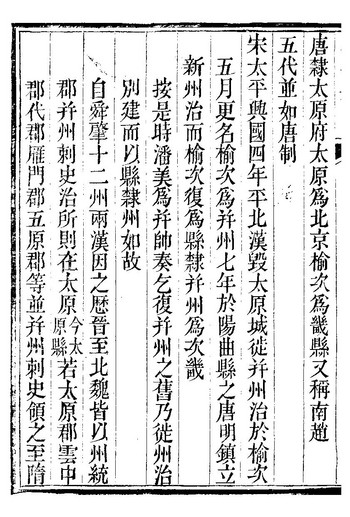 唐隸太原府太原爲北京榆次爲畿縣又稱南趙
五代並如唐制
宋太平興國四年平北漢毀太原城徙幷州治於榆次
五月更名榆次爲幷州七年於陽曲縣之唐明鎮立
新州治而榆次復爲縣隸幷州爲次畿
按是時潘美爲幷帥奏乞復幷州之舊乃徙州治
別建而以縣隸州如故
自舜肇十二州兩漢因之歷晉至北魏皆以州統
郡幷州刺史治所則在太原今太原縣若太原郡雲中
郡代郡雁門郡五原郡等並幷州刺史領之至隋